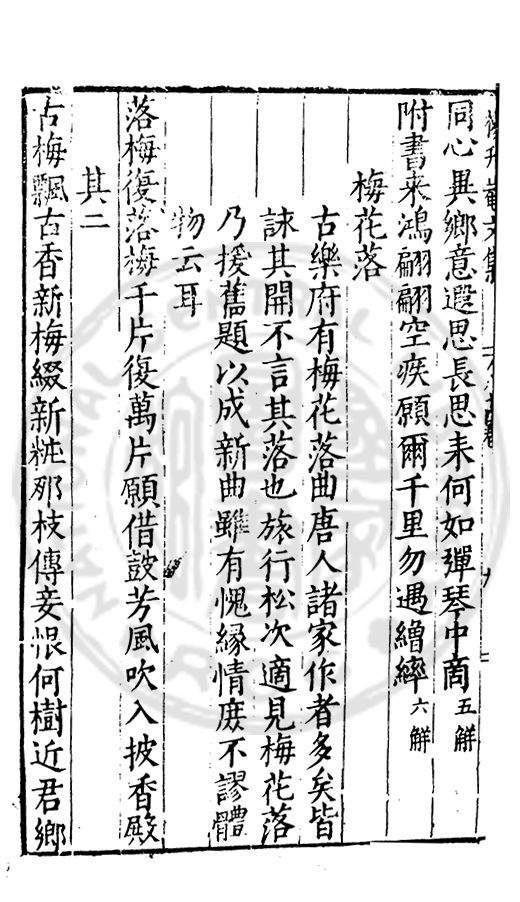 同心異鄉意遐思長思未何如彈琴中商五解
附書来鴻翩翩空疾願爾千里勿遇繒繂六解
梅花落
古樂府有梅花落曲唐人諸家作者多矣皆
詠其開不言其落也旅行松次適見梅花落
乃援舊題以成新曲雖有愧緣情庶不謬體
物云耳
落梅復落梅千片復萬片願借鼓芳風吹入披香殿
其二
古梅飄古香新梅綴新粧那枝傳妾恨何樹近君鄉